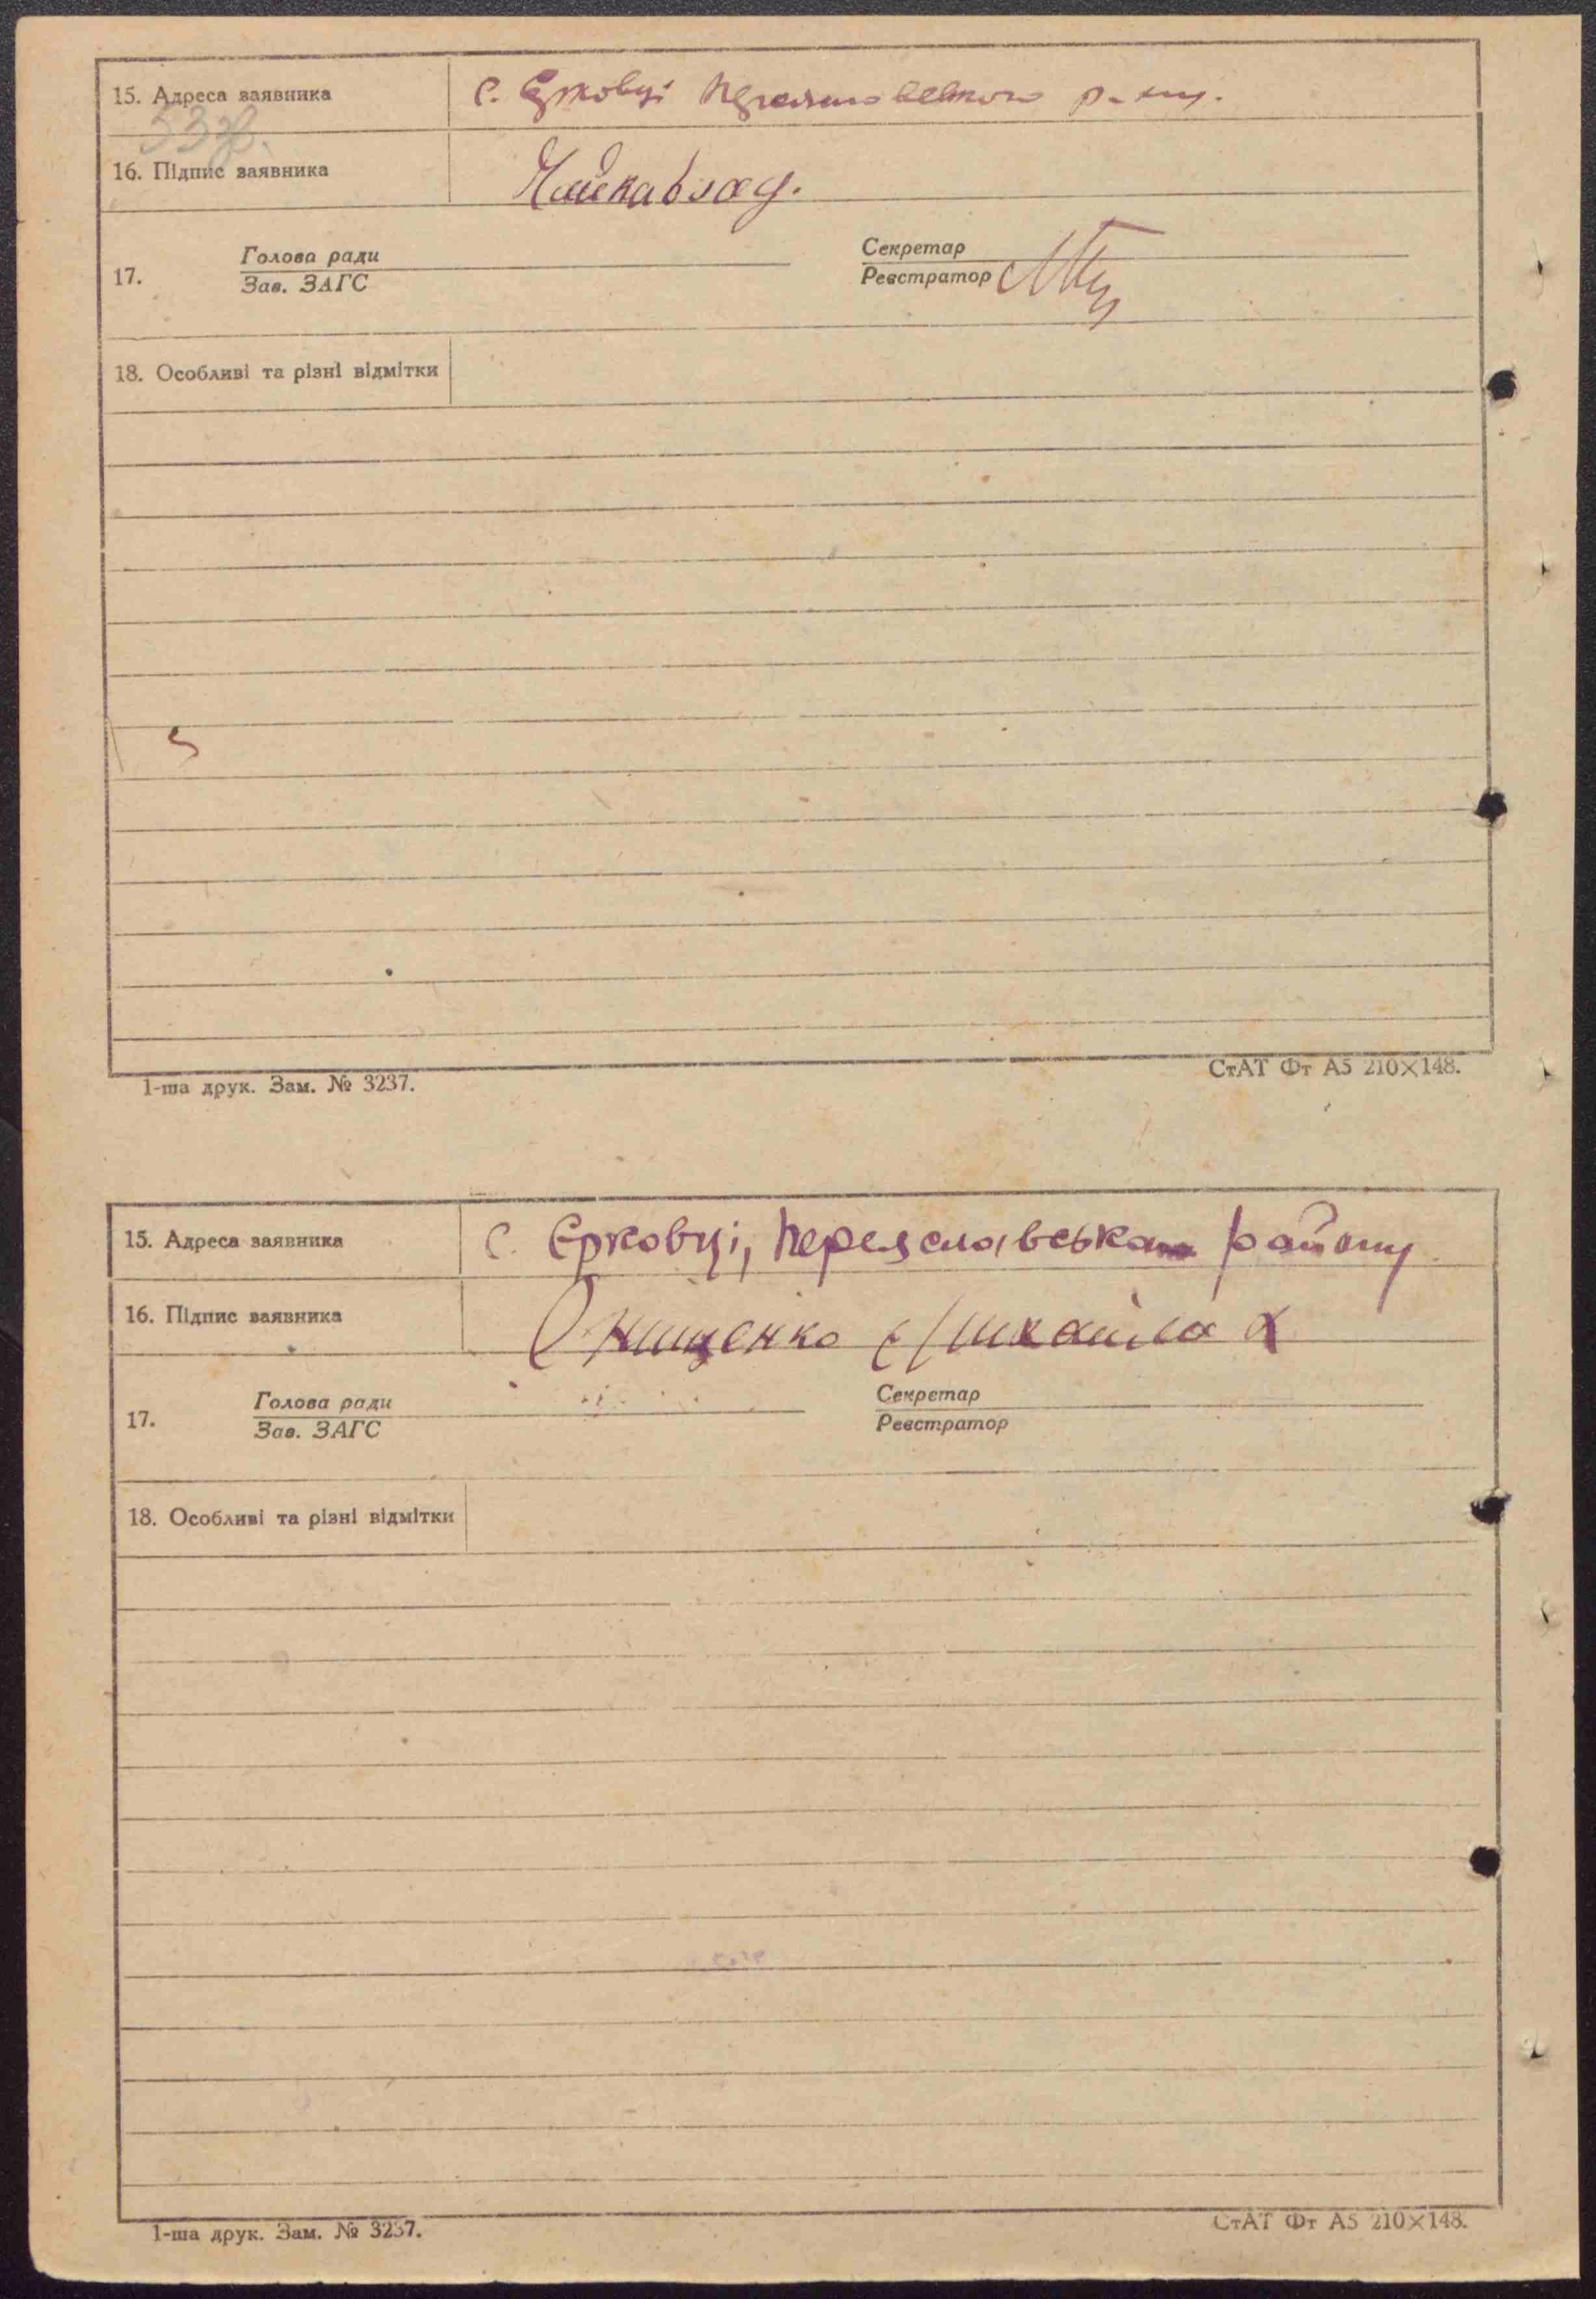 15. Адреса заявника с. Єрковці Переяславського р-ну.
53 зв.
16. Підпис заявника
17. Голова ради Секретар
Зав. ЗАГС Реєстратор
18. Особливі та різні відмітки
1-ша друк. Зам. № 3237. СтАТ Фт А5 210×148.
15. Адреса заявника с. Єрковці, Переяславська району
16. Підпис заявника Онищенко Михайло
17. Голова ради Секретар
Зав. ЗАГС Реєстратор
18. Особливі та різні відмітки
1-ша друк. Зам. № 3237. СтАТ Фт А5 210×148.